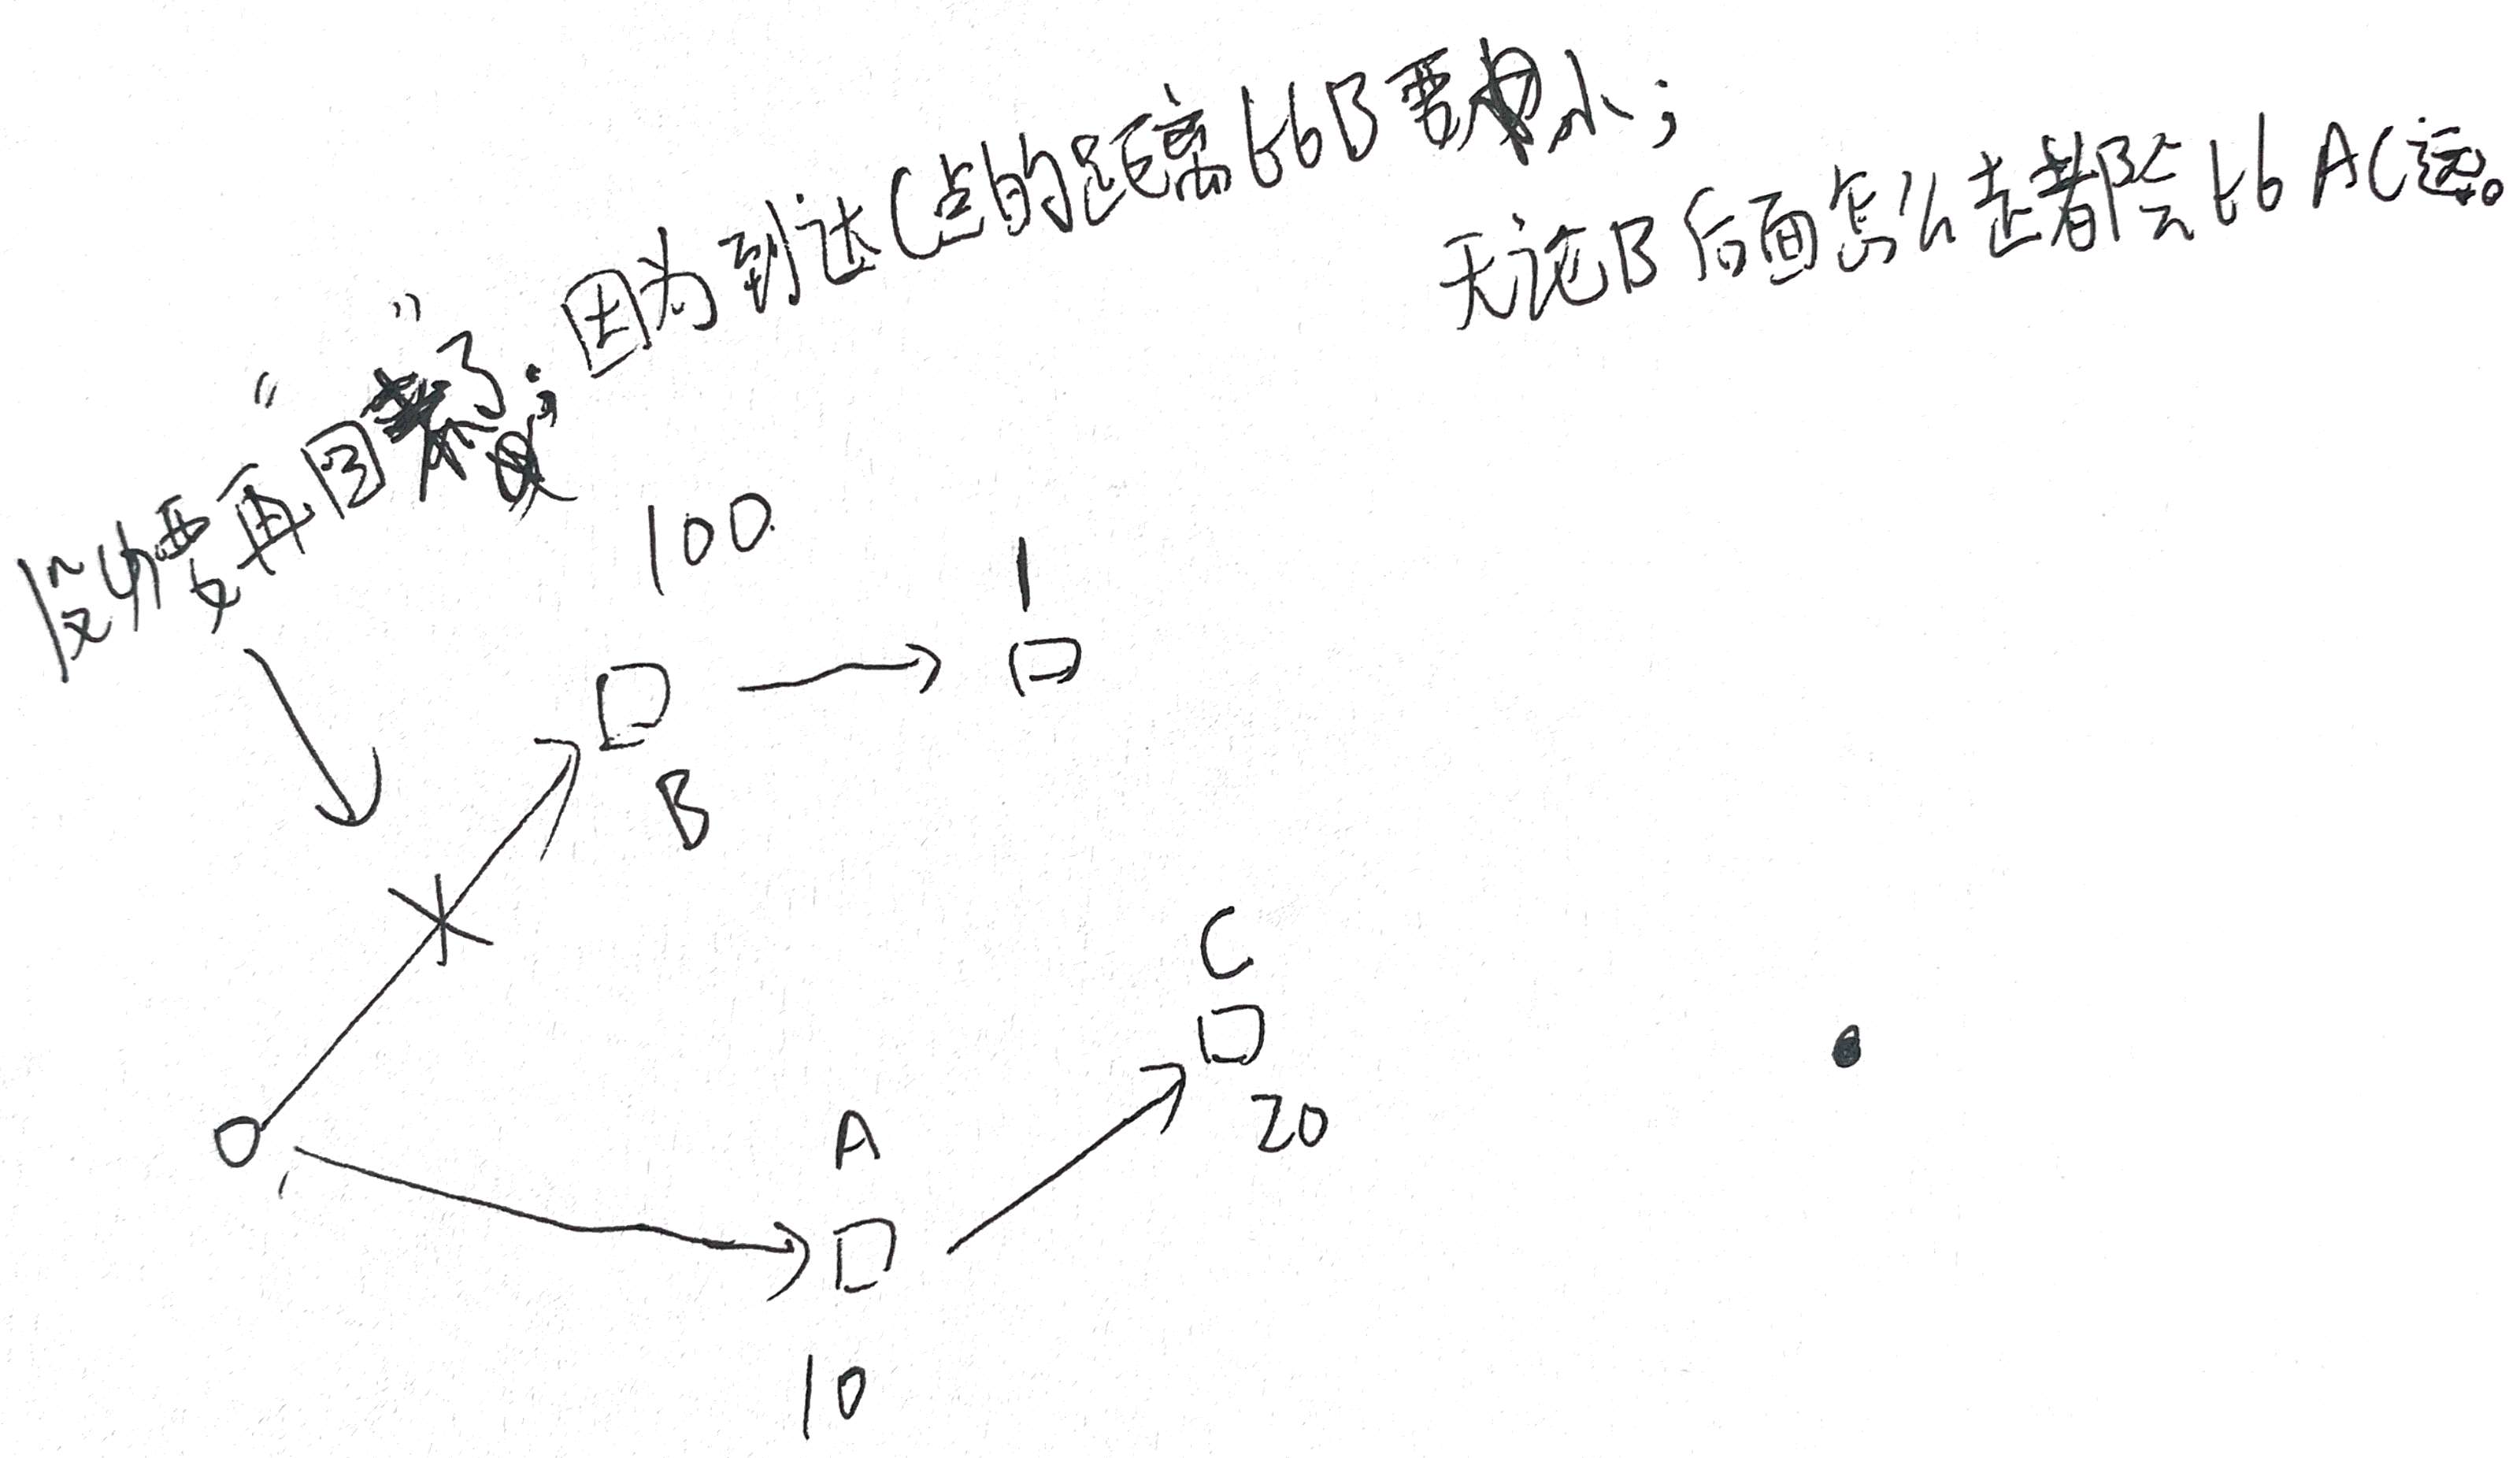 没必要再“回头”了；因为到达C点的距离比B要小；
无论B后面怎么走都会比AC远。
100
1
B
C
20
A
10